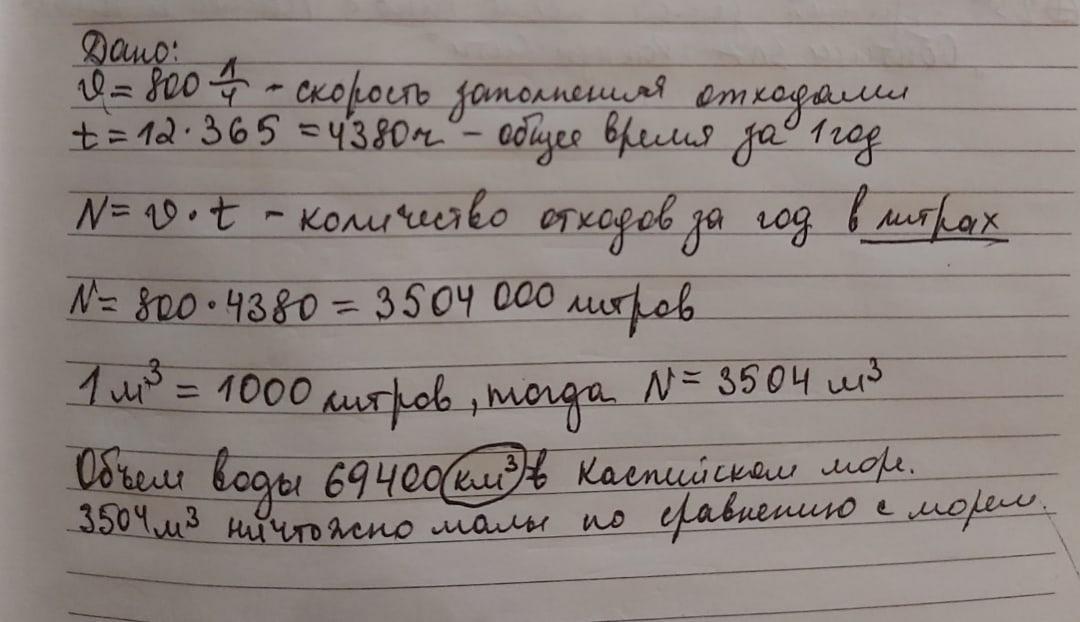 Дано:
v = 800 л/ч - скорость заполнения отходами
t = 12 · 365 = 4380ч - общее время за 1 год
N = v · t - количество отходов за год в литрах
N = 800 · 4380 = 3504 000 литров
1 м³ = 1000 литров, тогда N = 3504 м³
Объем воды 69400 км³ в Каспийском море.
3504 м³ ничтожно малы по сравнению с морем.